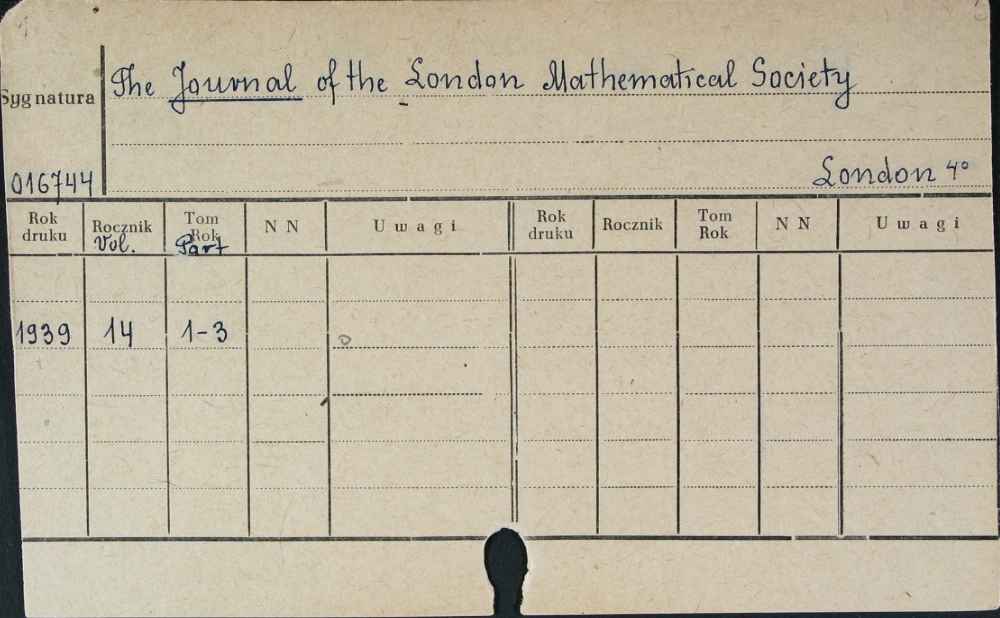 The Journal of the London Mathematical Society
Sygnatura
016744
London 4°
Rok druku Rocznik Vol. Tom Rok Part N N Uwagi Rok druku Rocznik Tom Rok N N Uwagi
1939 14 1-3